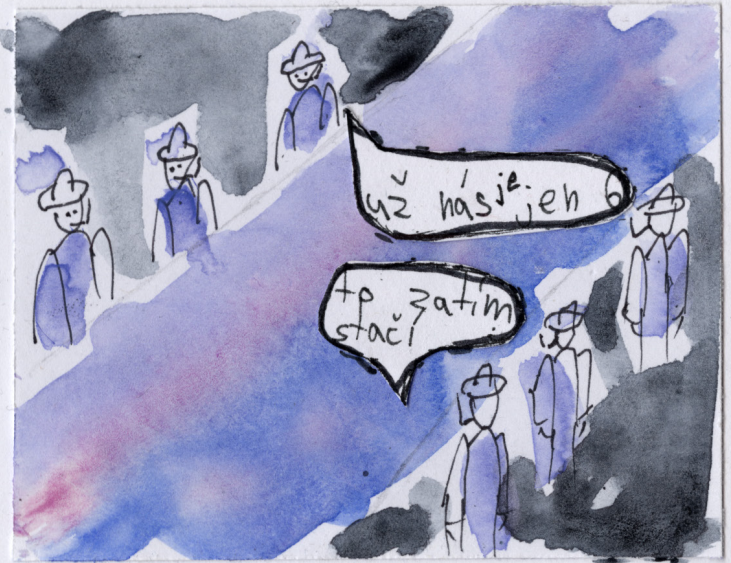 už nás je jen 6
to zatím
stačí